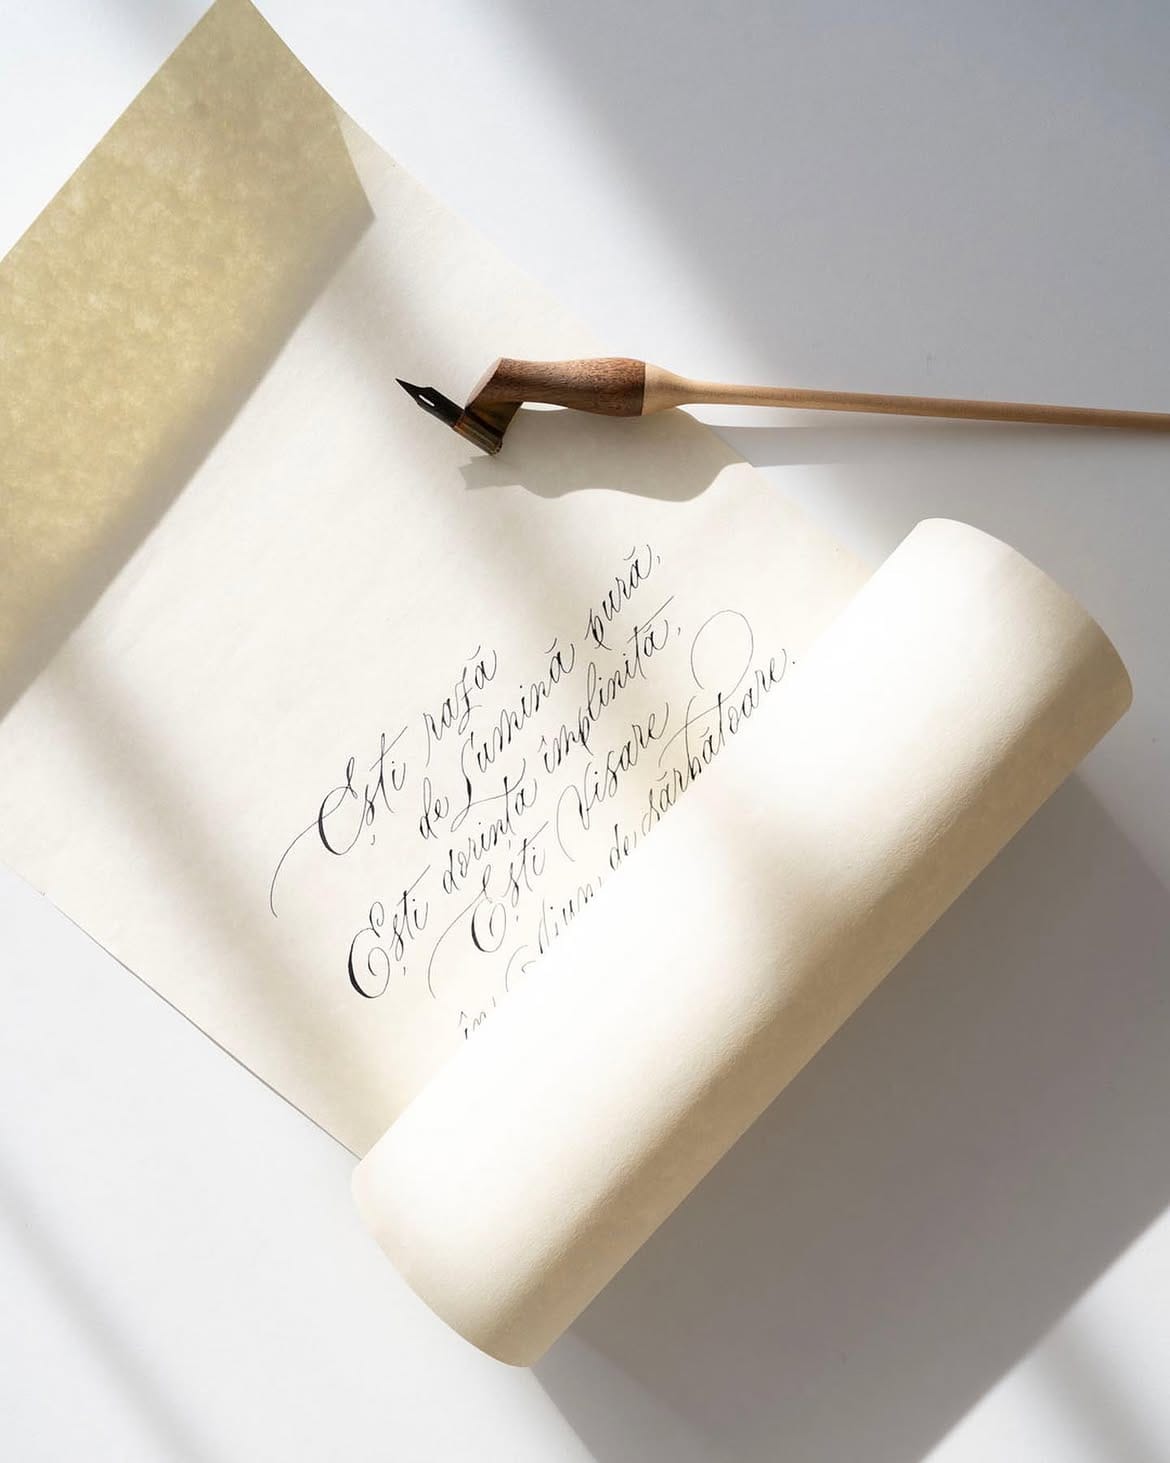 Ești rază
de Lumină pură,
Ești dorință împlinită,
Ești Visare
în de sărbătoare.